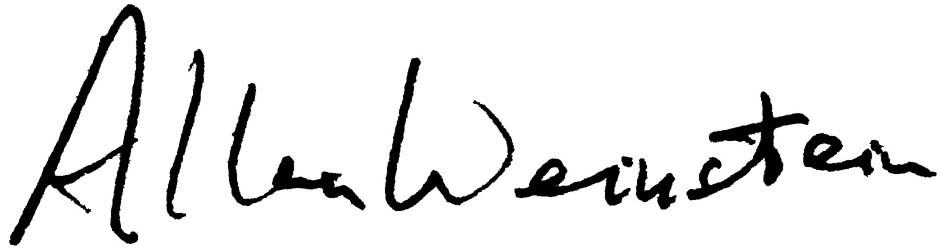 Allen Weinstein